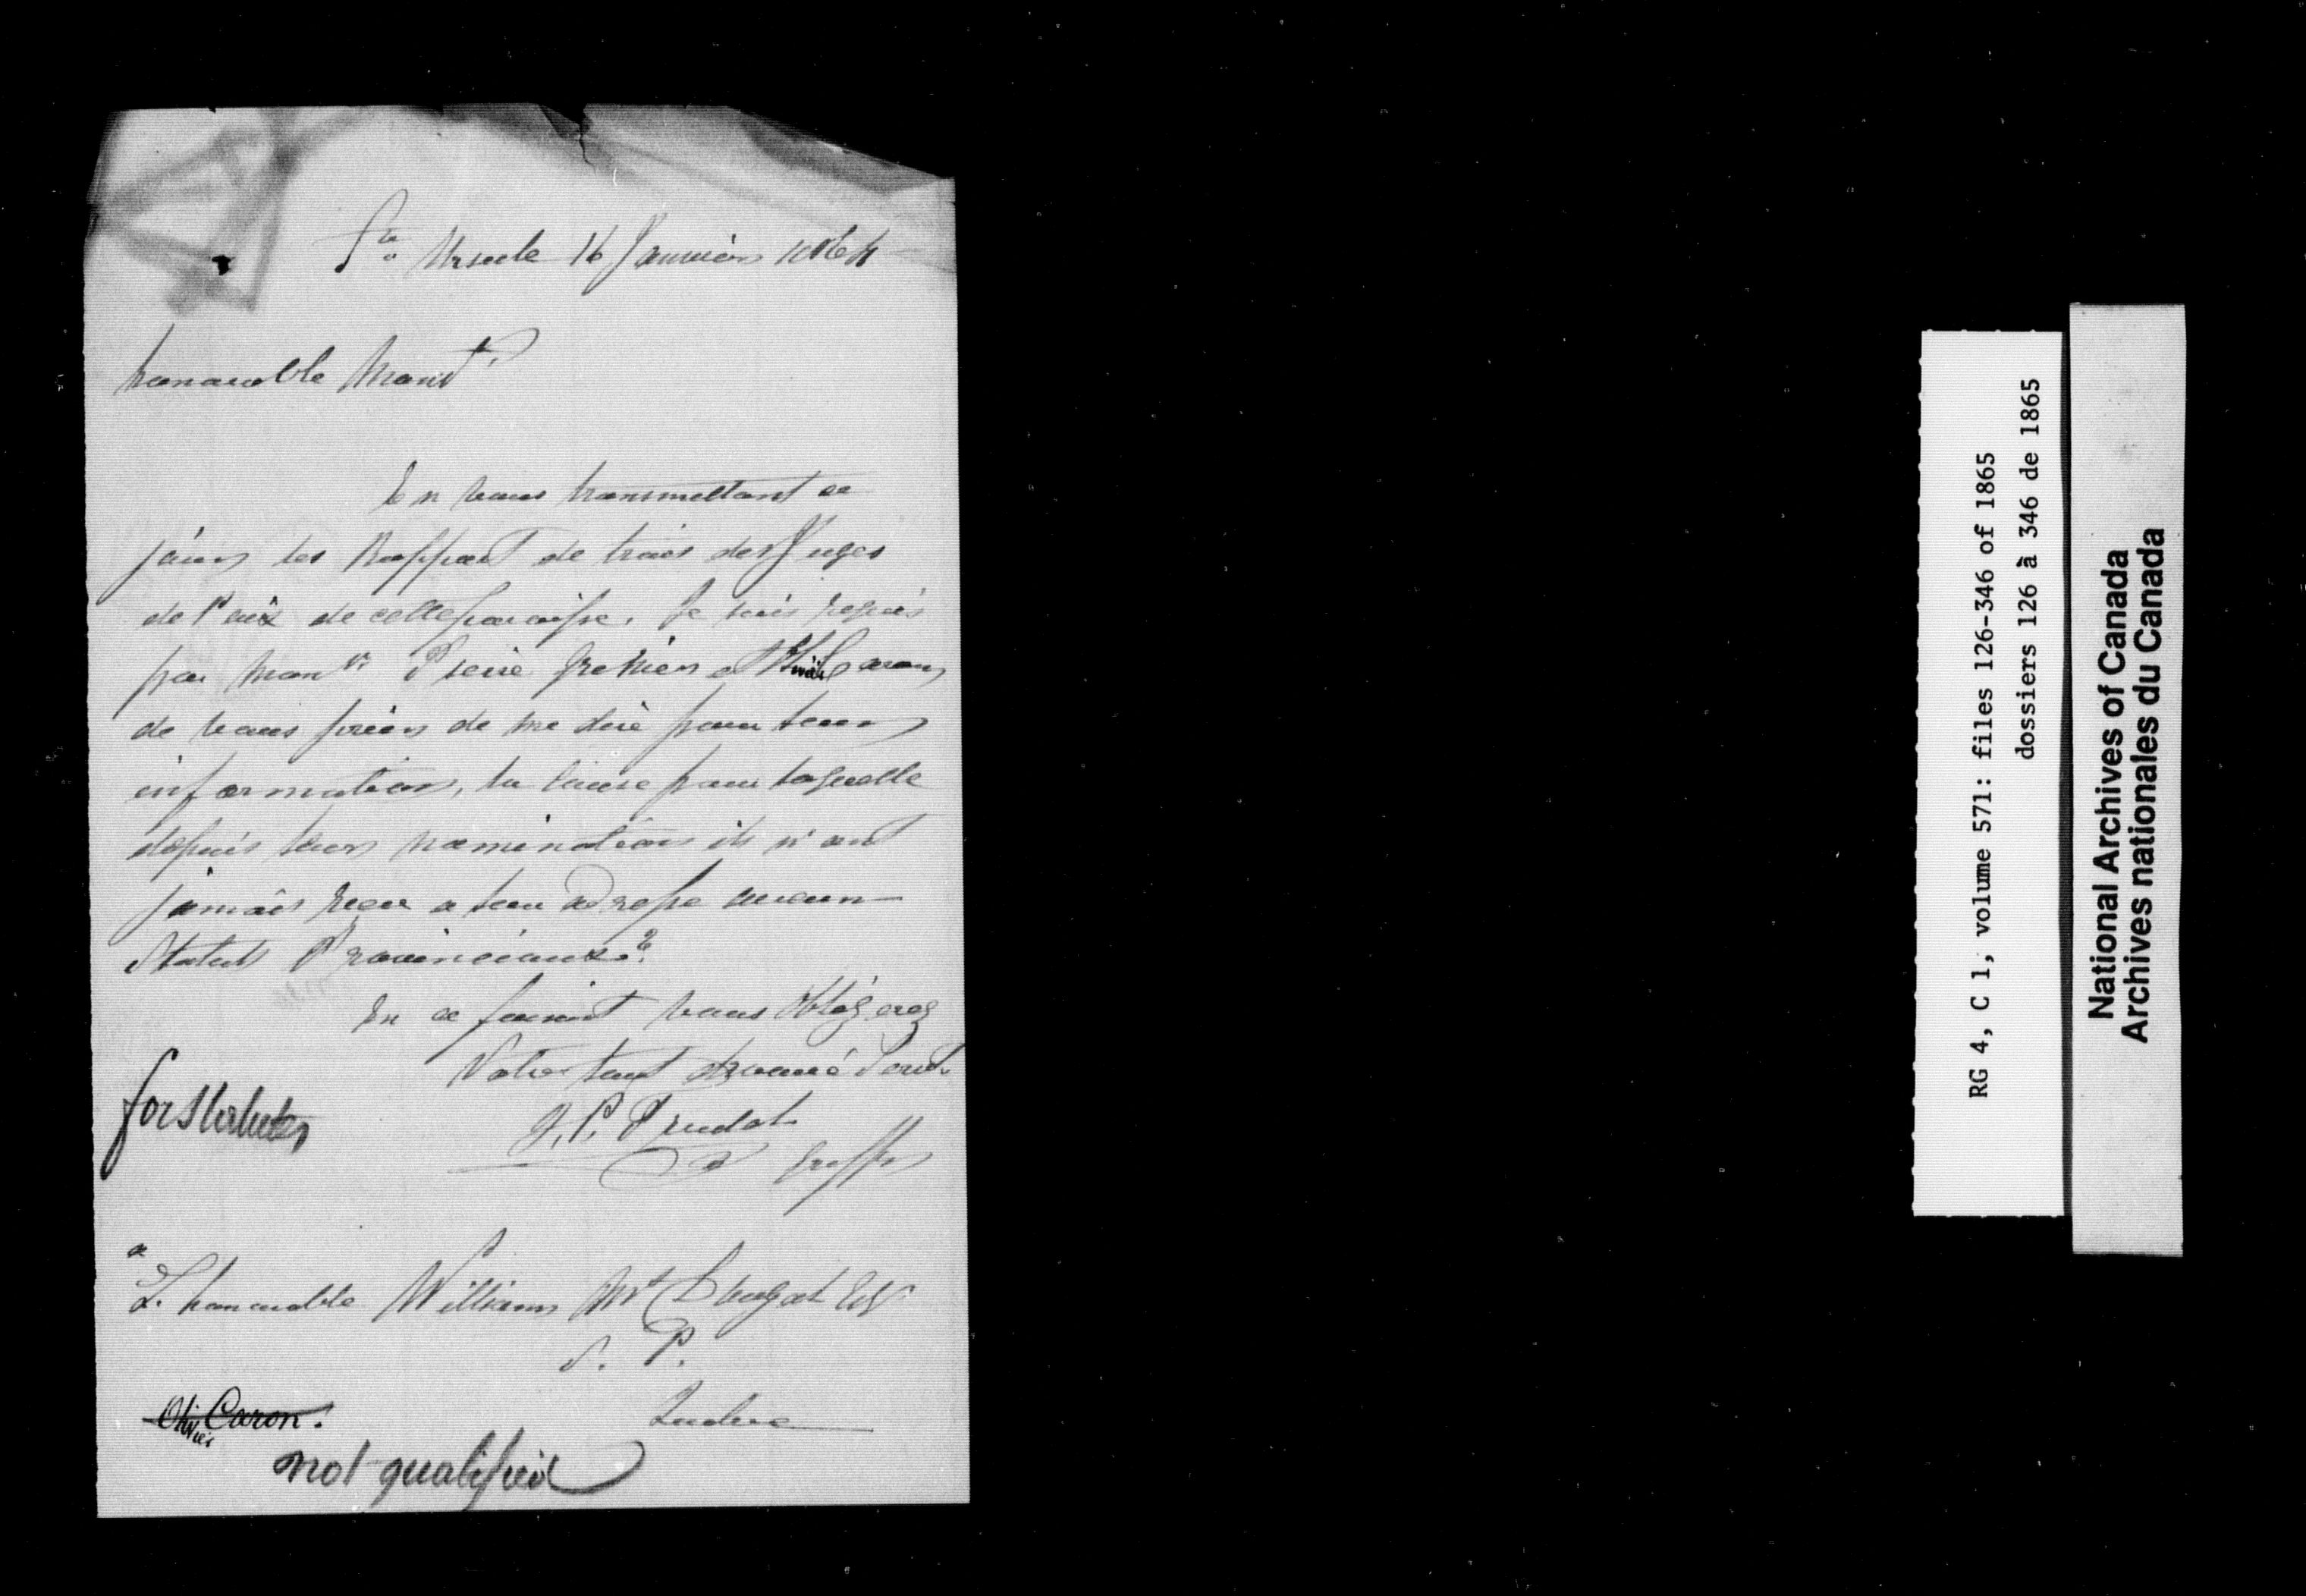 Ste Ursule 16 Janvier
honorable Monsr
En vous transmettant ce
jour les Rapport de trois des Juges
de Paix de cette paroisse. Je suis requis
par Monsr Pierre et Caron
de vous prier de me dire pour leur
information, la cause pour laquelle
depuis leur nomination ils n'ont
jamais recu a leur adresse aucun
Statuts Provinciaux?
En ce faisant vous obligerez
Votre tout devoué Servt
J. P. Trudel
Greffr
for Statutes
a
L. honorable William Mc Dougal Esqr
S. P.
Quebec
Olivier Caron.
not qualified
RG 4, C 1, volume 571: files 126-346 of 1865
dossiers 126 à 346 de 1865
National Archives of Canada
Archives nationales du Canada